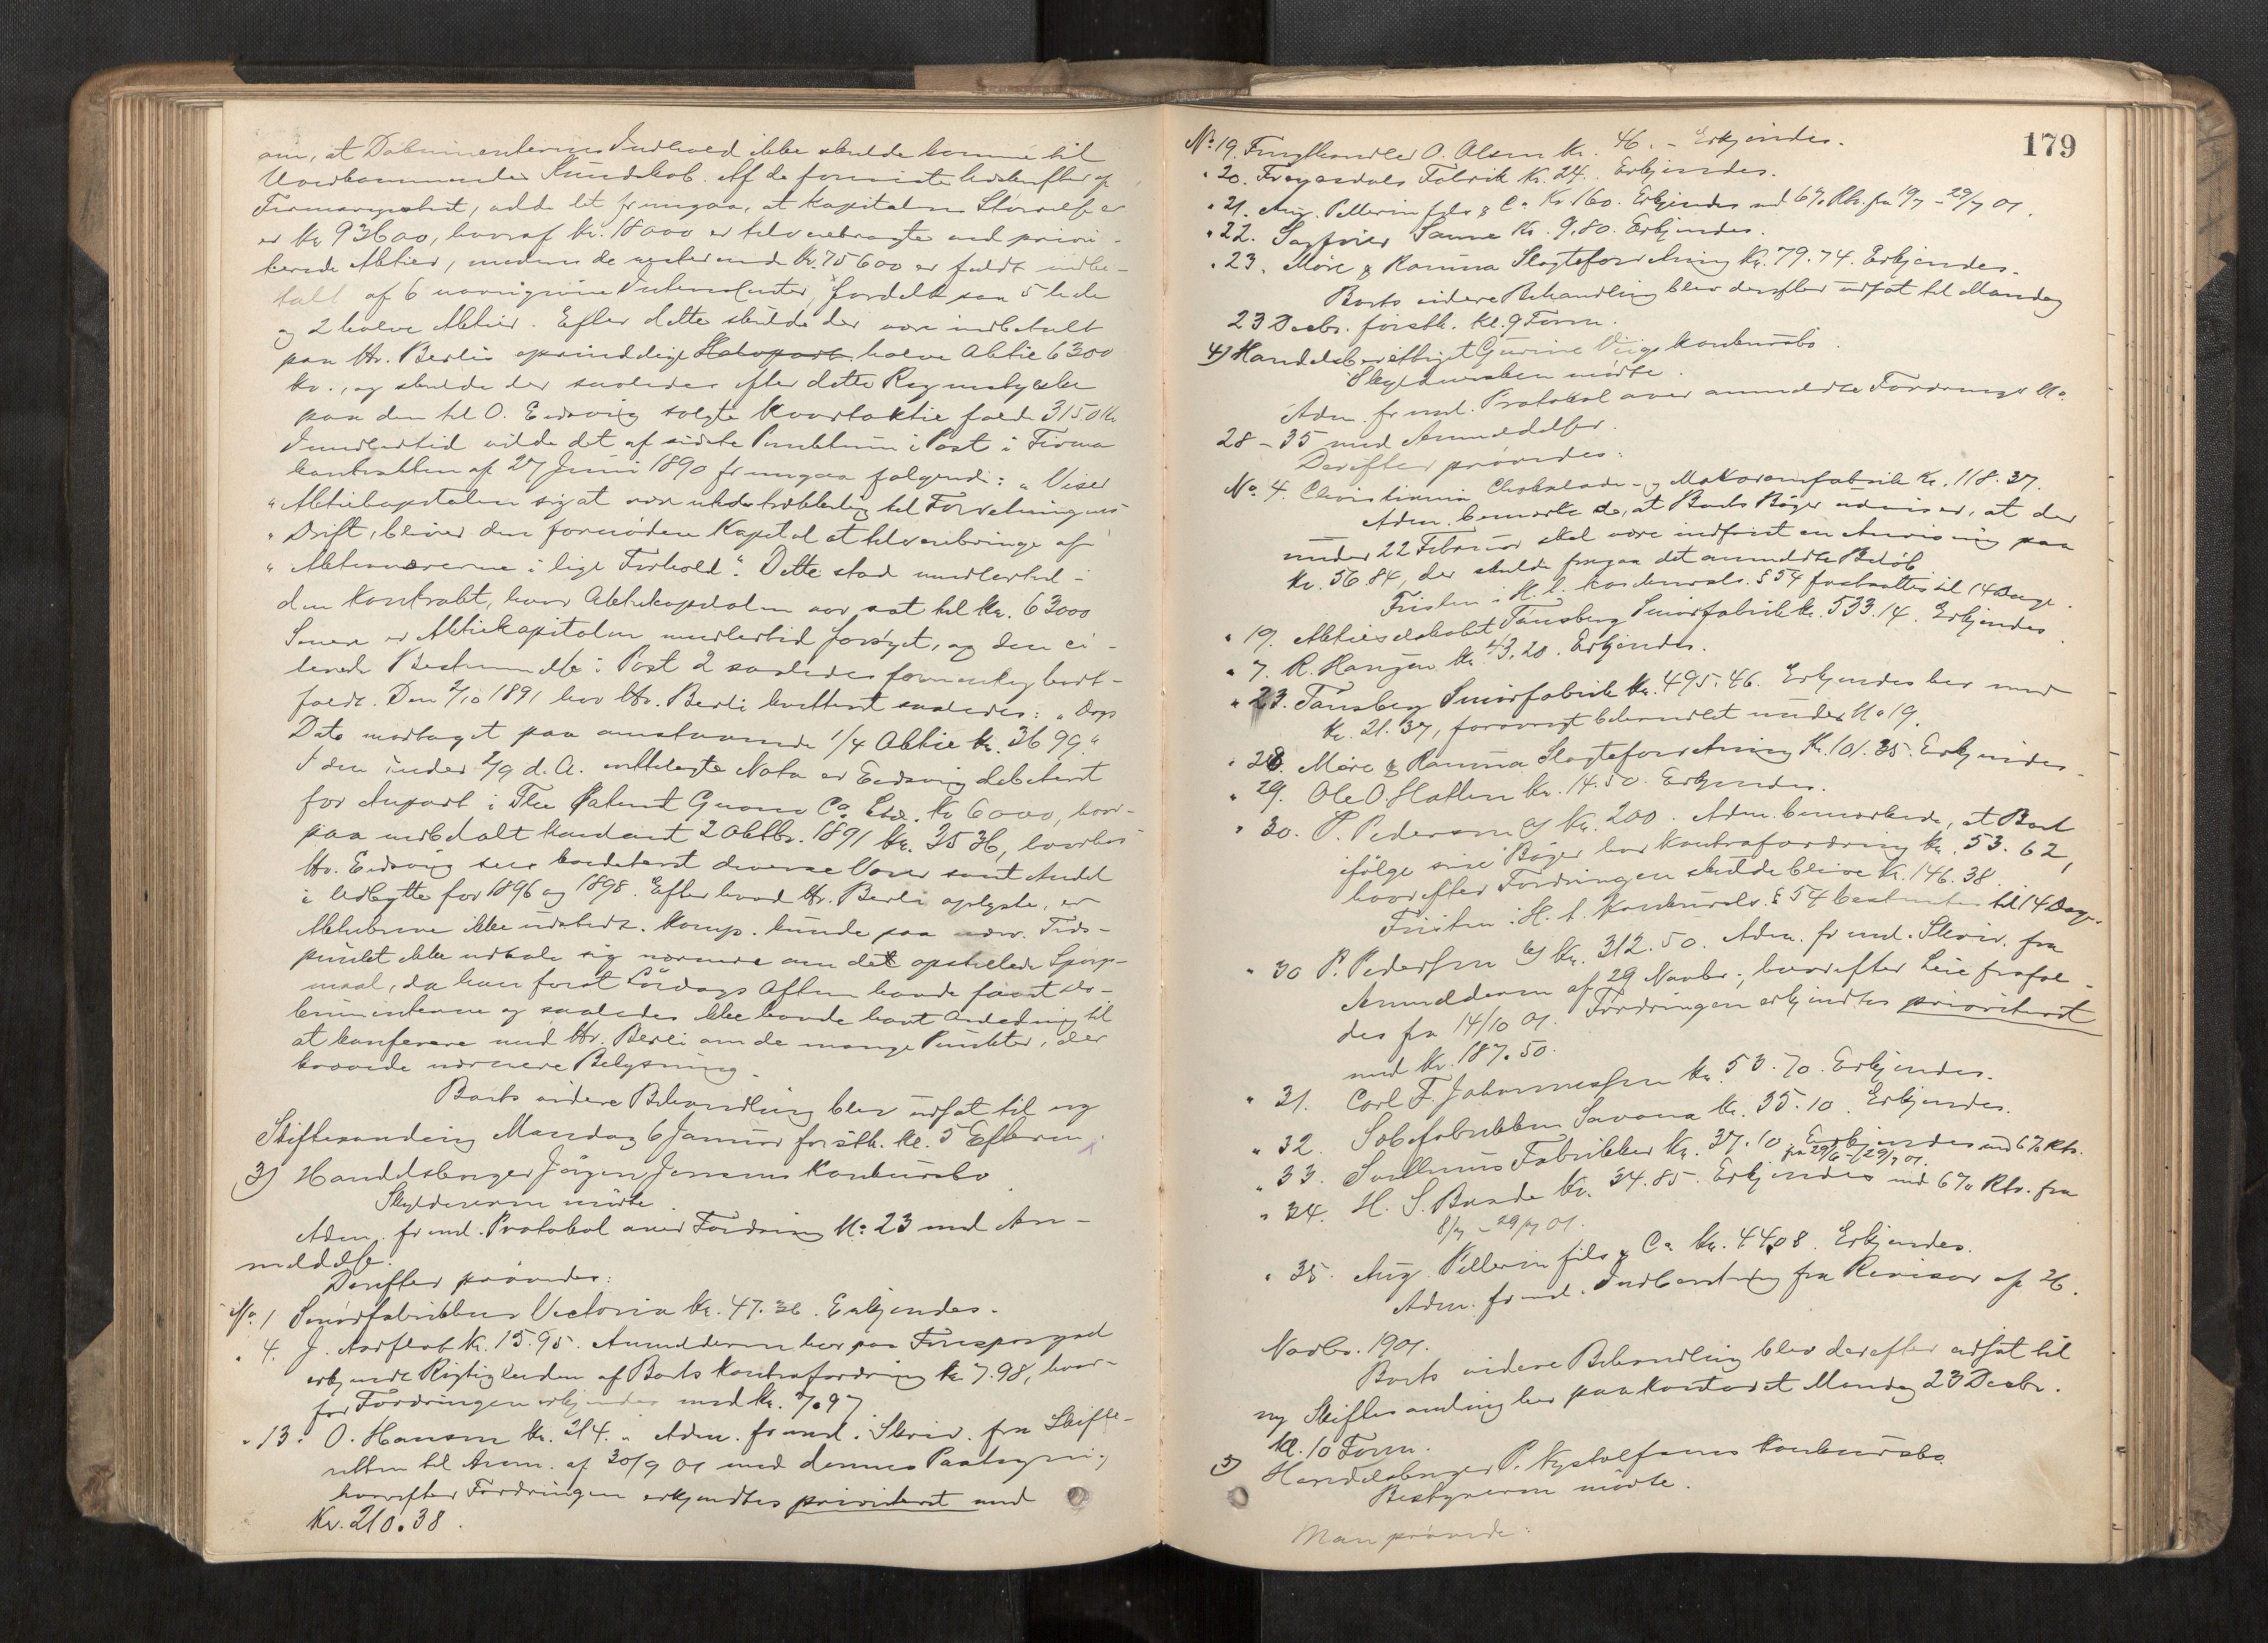 om, at Dokumenternes Indhold ikke skulde komme til
Uvedkommendes Kundskab. Af de foreviste Udskrifter af
Firmaregistret, vilde let fremgaa, at Kapitalens Størrelse er
er Kr 93600, hvoraf Kr. 18000 er tilveiebragte ved priori-
terede Aktier, medens de resterende Kr. 75600 er fuldt indbe-
talt af 6 Interessenter, fordelt paa 5 hele
og 2 halve Aktier. Efter dette skulde der være indbetalt
paa Hr. Berlis oprindelige Halvpart halve Aktie 6300
Kr., og skulde der saaledes efter dette Regnestykke
paa den til O. Endsvig solgte Kvartaktie falde 3150 Kr
Imidlertid vilde det af sidste Punktum i Post i Firma
kontrakten af 27 Juni 1890 fremgaa følgende: "Viser
"Aktiekapitalen sig at være utilstrækkelig til Forretningens
"Drift, bliver den fornødne Kapital at tilveiebringe af
"Aktionærerne i lige Forhold." Dette stod imidlertid i
den Kontrakt, hvor Aktiekapitalen var sat til Kr. 63000
Senere er Aktiekapitalen imidlertid forøget, og den ci-
terede Bestemmelse i Post 2 saaledes formentlig bort-
faldt. Den 2/10 1891 har Hr. Berli kvitteret saaledes: "Dags
Dato modtaget paa omstaaende 1/4 Aktie Kr. 3699."
I den under 2/9 d.A. Nota er Endsvig debiteret
for Anpart i The Patent Guano Co Ltd. Kr 6000, hvor-
paa indbetalt Kontant 2 Oktbr. 1891 Kr. 3536, hvorhos
Hr. Endsvig sees krediteret diverse Varer samt Andel
i Udbytte for 1896 og 1898. Efter hvad Hr. Berli oplyste, er
Aktiebreve ikke udstedt. Komp. kunde paa nærv. Tids-
punkt ikke udtale sig nærmere om det opstillede Spørgs-
maal, da han først Lørdags Aften havde faaet Do-
kumenterne og saaledes ikke havde havt Anledning til
at konferere med Hr. Berli om de mange Punkter, der
krævede nærmere Belysning.
Boets videre Behandling blev udsat til ny
Skiftesamling Mandag 6 Januar førstk. Kl. 5 Efterm.
3) Handelsborger Jørgen Jensens Konkursbo
Skyldneren mødte.
Adm. freml. Protokol over Fordring No 23 med An-
meldelse.
Derefter prøvedes:
No. 1 Smørfabrikken Victoria Kr. 47.36. Erkjendes.
" 4. J. Aarflot Kr. 15.95. Anmelderen har paa Forespørgsel
erkjendt Rigtigheden af Boets Kontrafordring Kr. 7.98, hvor-
for Fordringen erkjendes med Kr. 7.97
" 13. O. Hansen Kr. 214. " Adm. freml. Skriv. fra Skifte-
retten til Anm. af 30/9 01 med dennes Paategn.;
hvorefter Fordringen erkjendtes prioriteret med
Kr. 210.38.
179
No. 19. O. Olsen Kr. 46. - Erkjendes.
" 20. Fabrik Kr. 24. Erkjendes.
" 21. Aug. Pellerin fils & Co Kr. 160. Erkjendes med 6% Rtr. fra 19/7 - 29/7 01.
" 22. Sagfører Sanne Kr. 9.80. Erkjendes.
" 23. Møre & Ramma Slagteforretning Kr. 79.74. Erkjendes.
Boets videre Behandling blev derefter udsat til Mandag
23 Decbr. førstk. Kl. 9 Form.
4) Handelsberettiget Gurine Veigs Konkursbo.
Skyldnersken mødte.
Adm. freml. Protokol over anmeldte Fordringer No.
28 - 35 med Anmeldelser.
Derefter prøvedes:
No. 4. Christiania Chokolade- og Makaronifabrik Kr. 118.37.
Adm. bemærkede, at Boets Bøger udviser, at der
under 22 Februar skal være indført en Anvisning paa
Kr. 56.84, der skulde fragaa det anmeldte Beløb
Fristen i H. t. Konkursl. § 54 fastsattes til 14 Dage.
" 19. Aktieselskabet Tønsberg Smørfabrik Kr. 533.14. Erkjendes.
" 7. R. Kr. 43.20. Erkjendes.
" 23. Tønsberg Smørfabrik Kr. 495.46. Erkjendes her med
Kr. 21.37, forøvrigt behandlet under No 19.
" 28. Møre & Ramma Slagteforretning Kr. 101.35. Erkjendes.
" 29. Ole O. Hatlen Kr. 14.50. Erkjendes.
" 30. P. Pedersen Kr. 200. Adm. bemærkede, at Boet
ifølge sine Bøger har Kontrafordring Kr. 53.62,
hvorefter Fordringen skulde blive Kr. 146.38.
Fristen i H. t. Konkursl. § 54 bestemtes til 14 Dage.
" 30 P. Pedersen Kr. 312.50. Adm. freml. Skriv. fra
Anmelderen af 29 Novbr.; hvorefter Leie frafal-
des fra 14/10 01. Fordringen erkjendtes prioriteret
med Kr. 187.50.
" 31. Carl F. Johannessen Kr. 53.70. Erkjendes.
" 32. Sæbefabrikken Savona Kr. 35.10. Erkjendes.
" 33. Fabrikker Kr. 37.10. Erkjendes med 6% Rtr.
fra 29/6 - 29/7 01.
" 34. H. S. Kr. 34.85. Erkjendes med 6% Rtr. fra
8/7 - 29/7 01.
" 35. Aug. Pellerin fils & Co Kr. 44.08. Erkjendes.
Adm. freml. Indberetning fra Revisor af 26.
Novbr. 1901.
Boets videre Behandling blev derefter udsat til
ny Skiftesamling her paa Kontoret Mandag 23 Decbr.
Kl. 10 Form.
5) Handelsborger P. Konkursbo.
Bestyreren mødte.
Man prøvede: